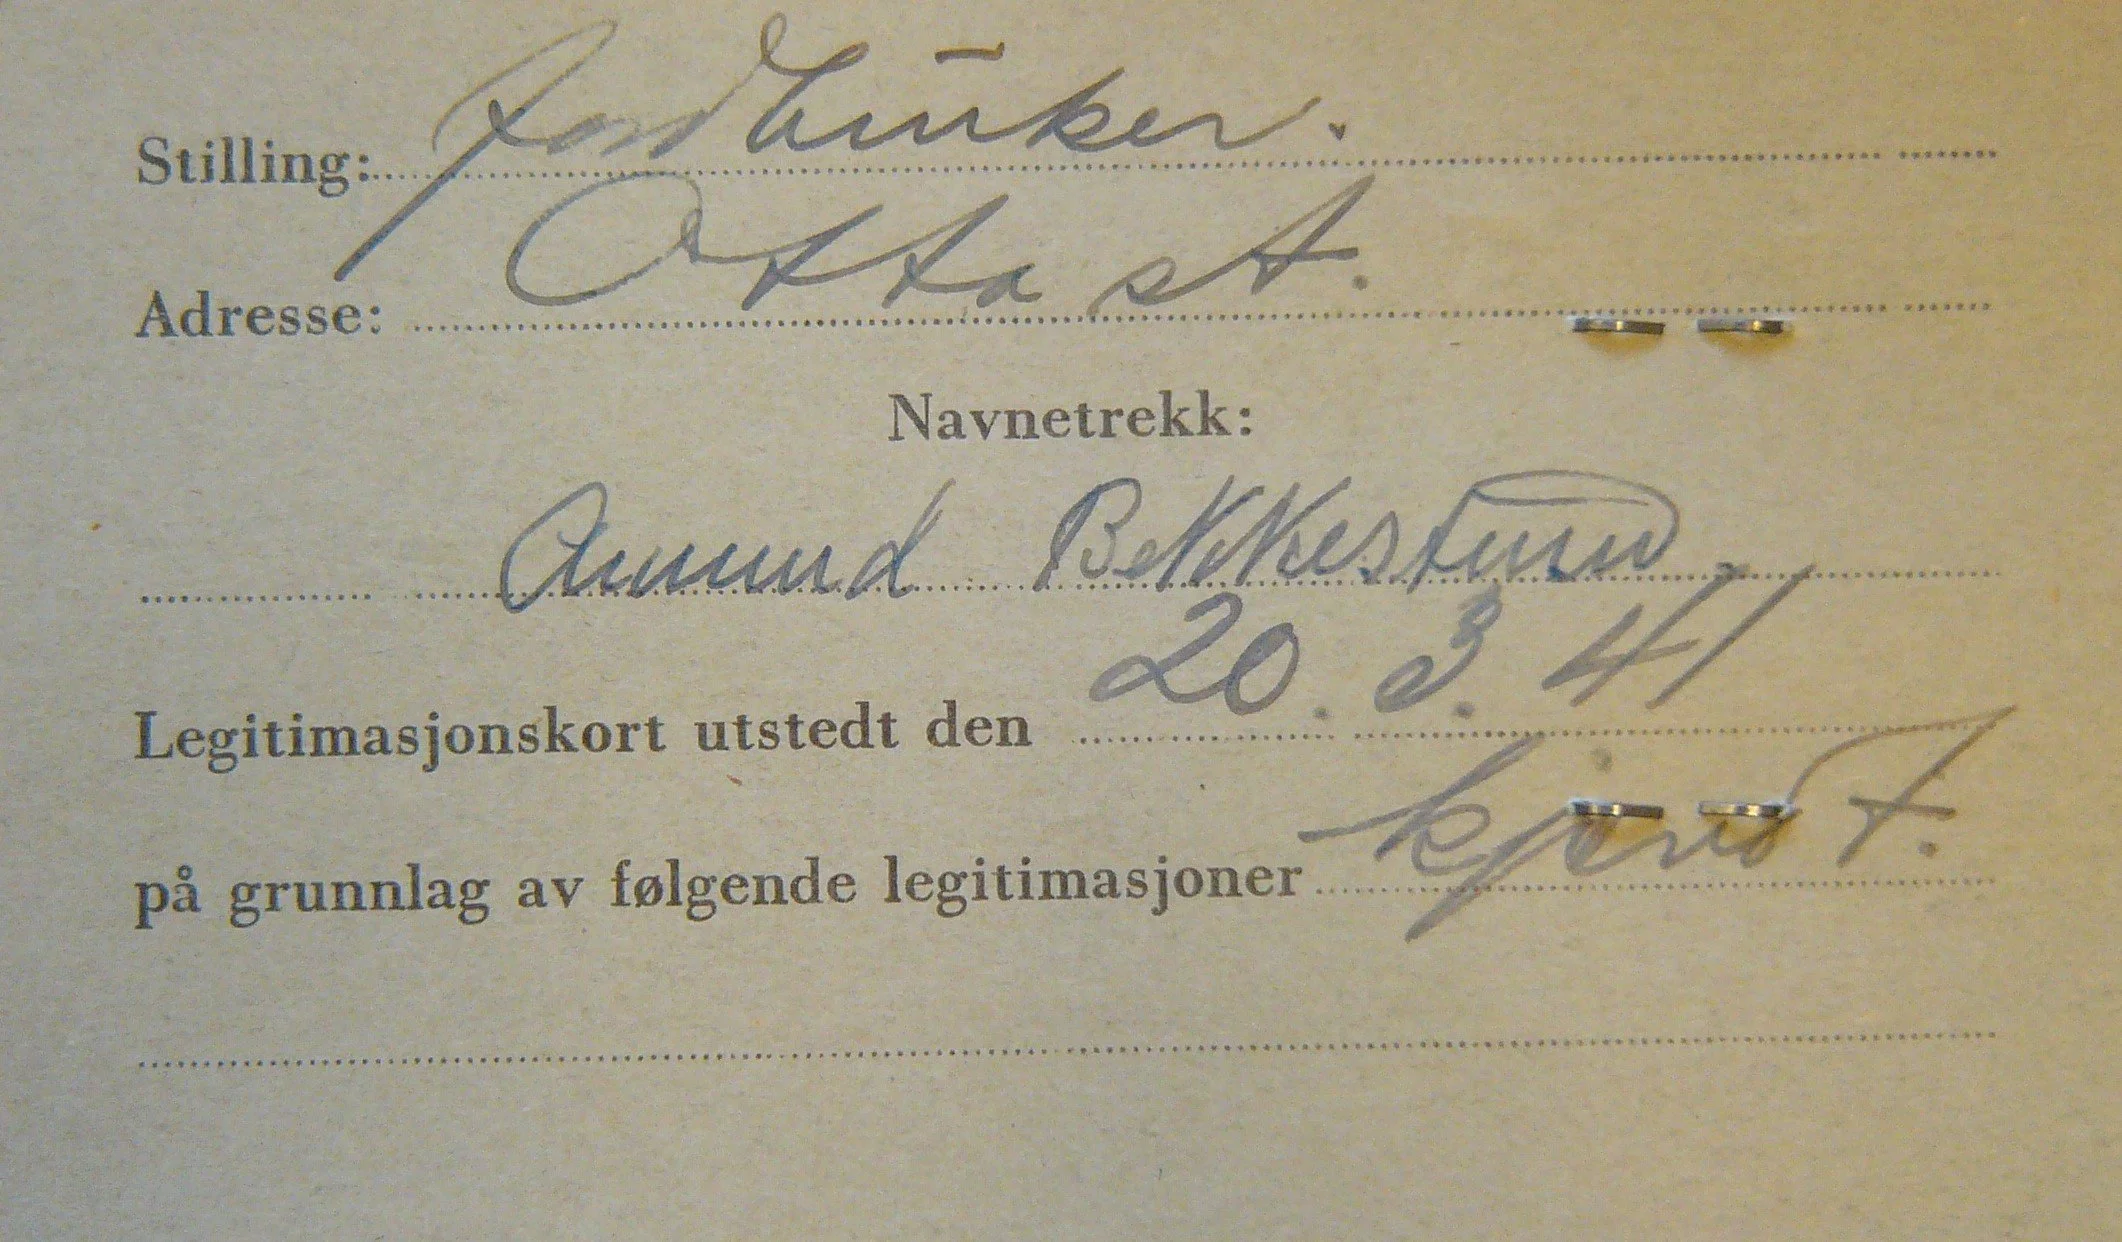 Stilling: Jordbruker.
Adresse: Otta st.
Navnetrekk:
Amund Bekkestund
Legitimasjonskort utstedt den 20. 3. 41
på grunnlag av følgende legitimasjoner kjendt.